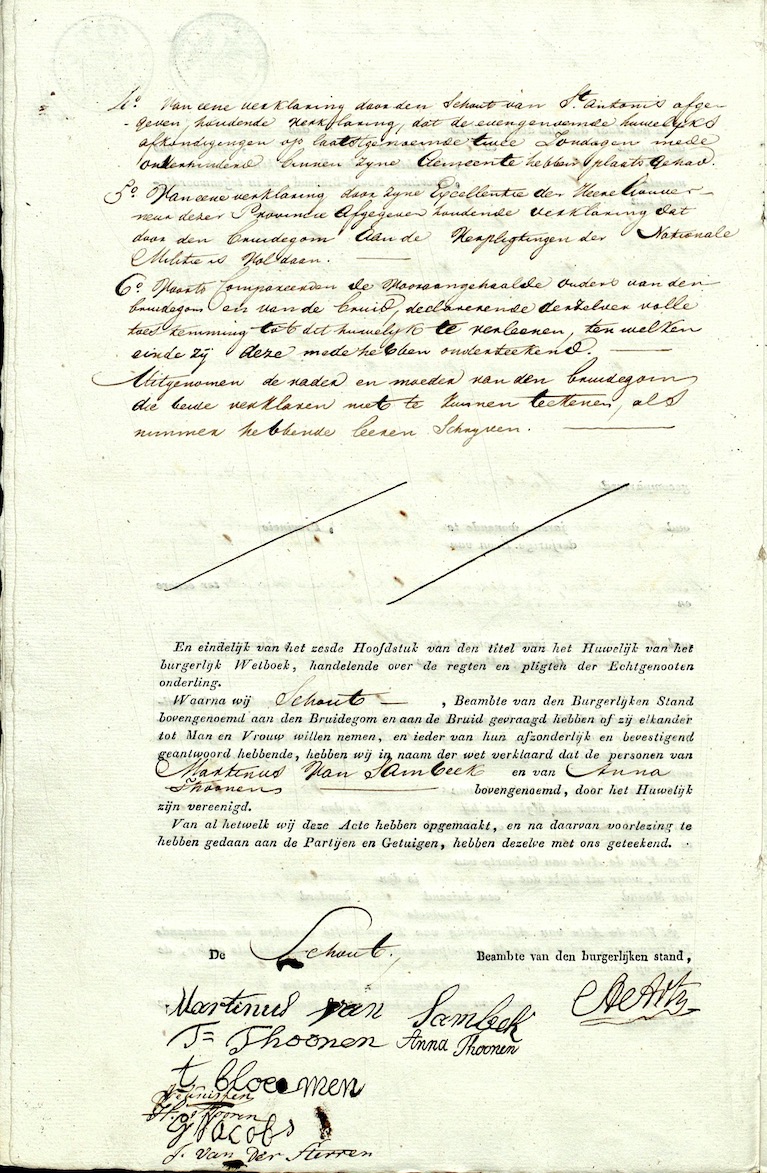 4.° Van eene verklaring door den Schout van St. Antonis afge-
geven, houdende verklaring, dat de evengenoemde huwelyks
afkondigingen op laatstgenoemde twee Zondagen mede
onverhinderd binnen zyne Gemeente hebben plaats gehad.
5.° Van eene verklaring door zyne Excellentie der Heere Gouver-
neur dezer Provincie afgegeven houdende verklaring dat
door den bruidegom aan de Verpligtingen der Nationale
Militie is Voldaan.
6.° Voorts Compareerden de Vooraangehaalde ouders van den
bruidegom en van de bruid, declarerende derzelver volle
toestemming tot dit huwelyk te verleenen, ten welken
einde zij deze mede hebben onderteekend.
Uitgenomen de vader en moeder van den bruidegom
die beide verklaren niet te kunnen teekenen, als
nimmer hebbende leeren Schryven.
En eindelijk van het zesde Hoofdstuk van den titel van het Huwelijk van het
burgerlyk Wetboek, handelende over de regten en pligten der Echtgenooten
onderling.
Waarna wij Schout , Beambte van den Burgerlijken Stand
bovengenoemd aan den Bruidegom en aan de Bruid gevraagd hebben of zij elkander
tot Man en Vrouw willen nemen, en ieder van hun afzonderlijk en bevestigend
geantwoord hebbende, hebben wij in naam der wet verklaard dat de personen van
Martinus Van Sambeek en van Anna
Thoonen bovengenoemd, door het Huwelijk
zijn vereenigd.
Van al hetwelk wij deze Acte hebben opgemaakt, en na daarvan voorlezing te
hebben gedaan aan de Partijen en Getuigen, hebben dezelve met ons geteekend.
De Schout, Beambte van den burgerlijken stand,
Martinus van Sambeek
T= Thoonen Anna Thoonen
t bloemen
G Jacobs
J. van Der Sterren